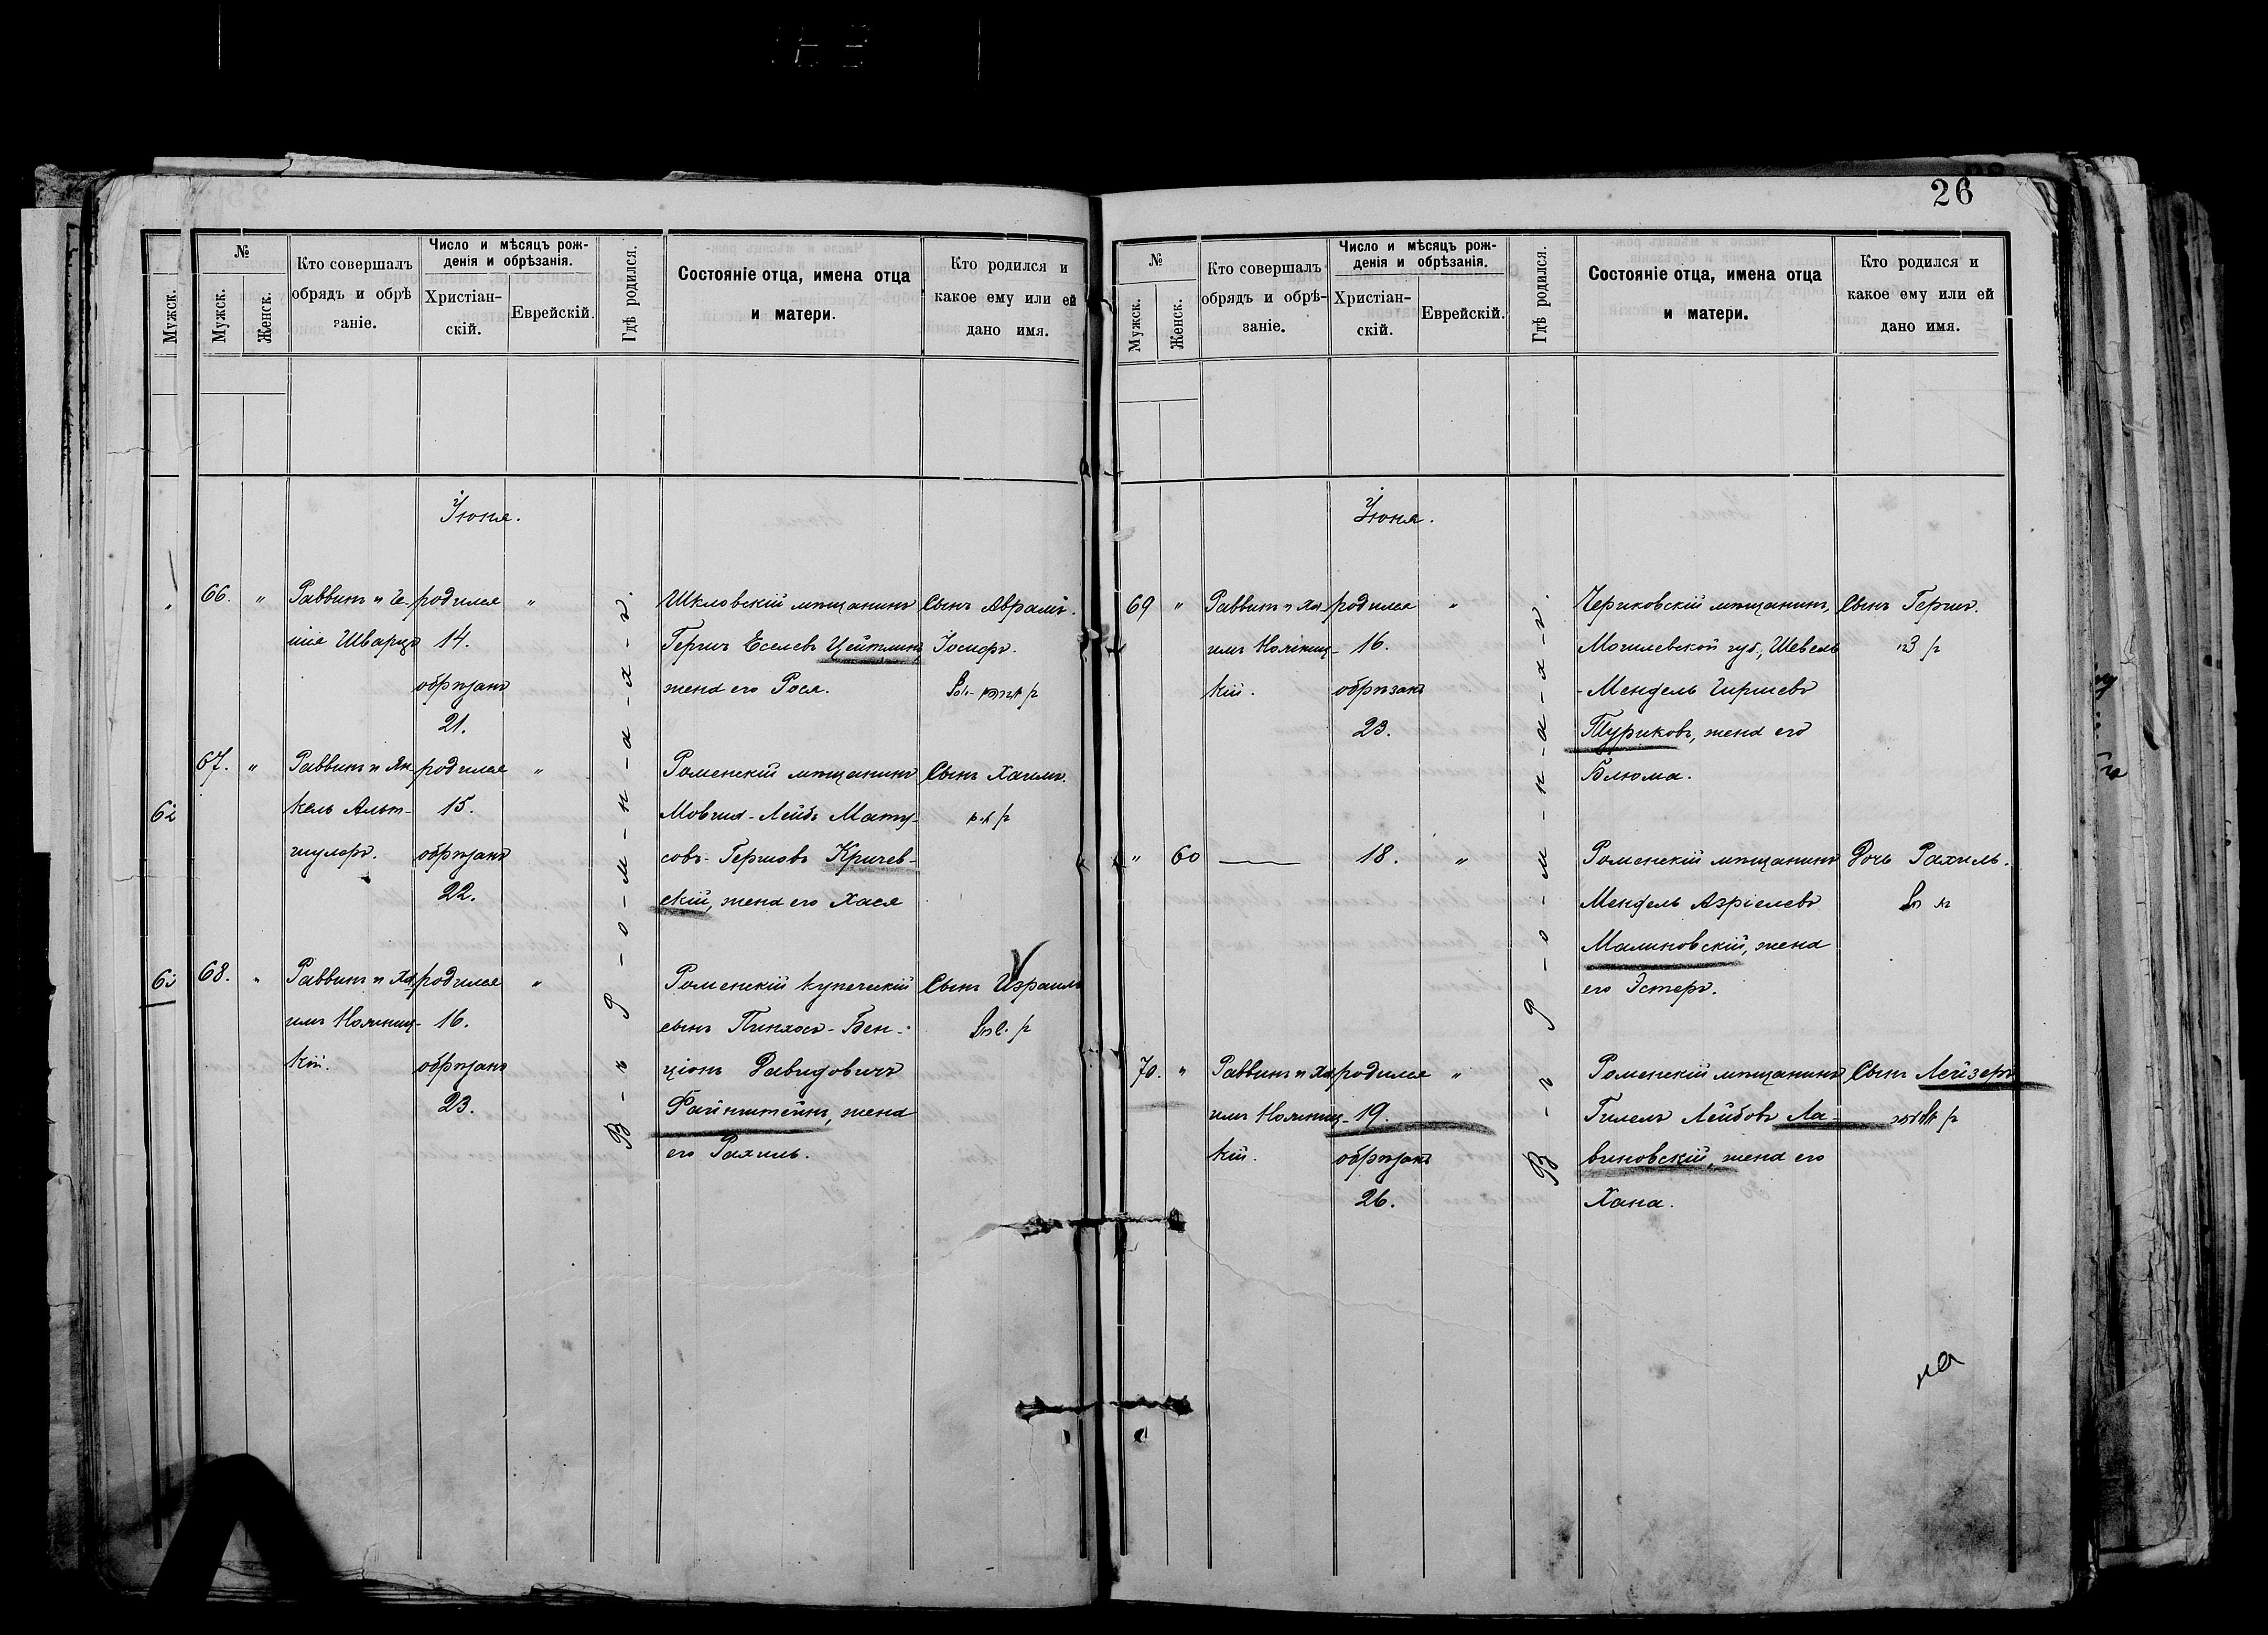 26
№
Мужск.
Мужск.
Женск.
Кто совершалъ
обрядъ и обрѣ
заніе.
Число и мѣсяцъ рож-
денія и обрѣзанія.
Христіан-
скій.
Еврейскій.
Гдѣ родился.
Состояніе отца, имена отца
и матери.
Кто родился и
какое ему или ей
дано имя.
Іюня.
66. " Раввинъ и
Шварцъ
родился
14.
обрѣзанъ
21.
"
Шкловскій мѣщанинъ
Гершъ Еселевъ Цейтлинъ
жена его Рося.
Сынъ Авраамъ
Іосифъ.
62
67. " Раввинъ и Ян
кель Альт-
шулеръ.
родился
15.
обрѣзанъ
22.
"
Роменскій мѣщанинъ
Мовша-Лейбъ Мату-
совъ-Гершовъ Кричев-
скій, жена его Хася
Сынъ Хаимъ.
63
68. " Раввинъ и Ха
имъ
кій.
родился
16.
обрѣзанъ
23.
"
Роменскій купеческій
сынъ Пинхосъ-Бен-
ціонъ Давидовичъ
Файнштейнъ, жена
его Рахиль.
Сынъ Израиль
В-ъ Р-о-м-н-а-х-ъ.
№
Мужск.
Женск.
Кто совершалъ
обрядъ и обрѣ-
заніе.
Число и мѣсяцъ рож-
денія и обрѣзанія.
Христіан-
скій.
Еврейскій.
Гдѣ родился.
Состояніе отца, имена отца
и матери.
Кто родился и
какое ему или ей
дано имя.
Іюня.
69 " Раввинъ и Ха
имъ
кій.
родился
16.
обрѣзанъ
23.
"
Чериковскій мѣщанинъ,
Могилевской губ., Шевель
-Мендель Гиршевъ
Туриковъ, жена его
Блюма.
Сынъ Гершъ.
" 60
18.
"
Роменскій мѣщанинъ
Мендель Азріелевъ
Малиновскій, жена
его Эстеръ.
Дочь Рахиль.
70. " Раввинъ и Ха
имъ
кій.
родился
19.
обрѣзанъ
26.
"
Роменскій мѣщанинъ
Гилелъ Лейбовъ Ла-
виновскій, жена его
Хана.
Сынъ Лейзеръ
В-ъ Р-о-м-н-а-х-ъ.